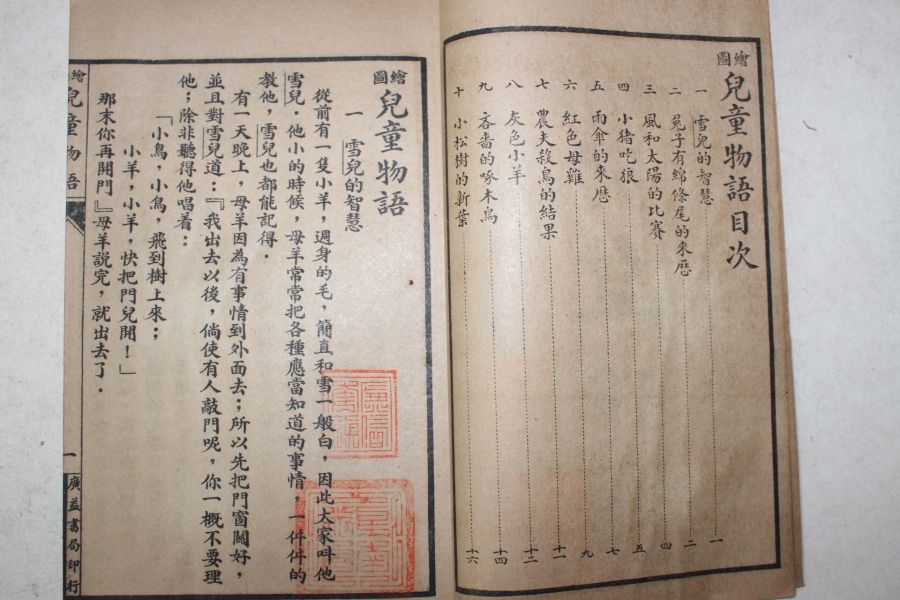 繪圖兒童物語目次
一 雪兒的智慧 一
二 兔子有綿條尾的來歷 二
三 風和太陽的比賽 四
四 小猪吃狼 五
五 雨傘的來歷 七
六 紅色母雞 九
七 農夫殺鳥的結果 十一
八 灰色小羊 十二
九 吝嗇的啄木鳥 十四
十 小松樹的新葉 十六
繪圖兒童物語
一 雪兒的智慧
從前有一隻小羊，週身的毛，簡直和雪一般白，因此大家呌他
雪兒．他小的時候，母羊常常把各種應當知道的事情，一件件的
教他，雪兒也都能記得．
有一天晚上，母羊因為有事情到外面去；所以先把門窗關好，
並且對雪兒道：『我出去以後，倘使有人敲門呢，你一概不要理
他；除非聽得他唱着：
「小鳥，小鳥，飛到樹上來；
小羊，小羊，快把門兒開！」
那末你再開門』母羊説完，就出去了．
繪兒童物語
一
廣益書局印行